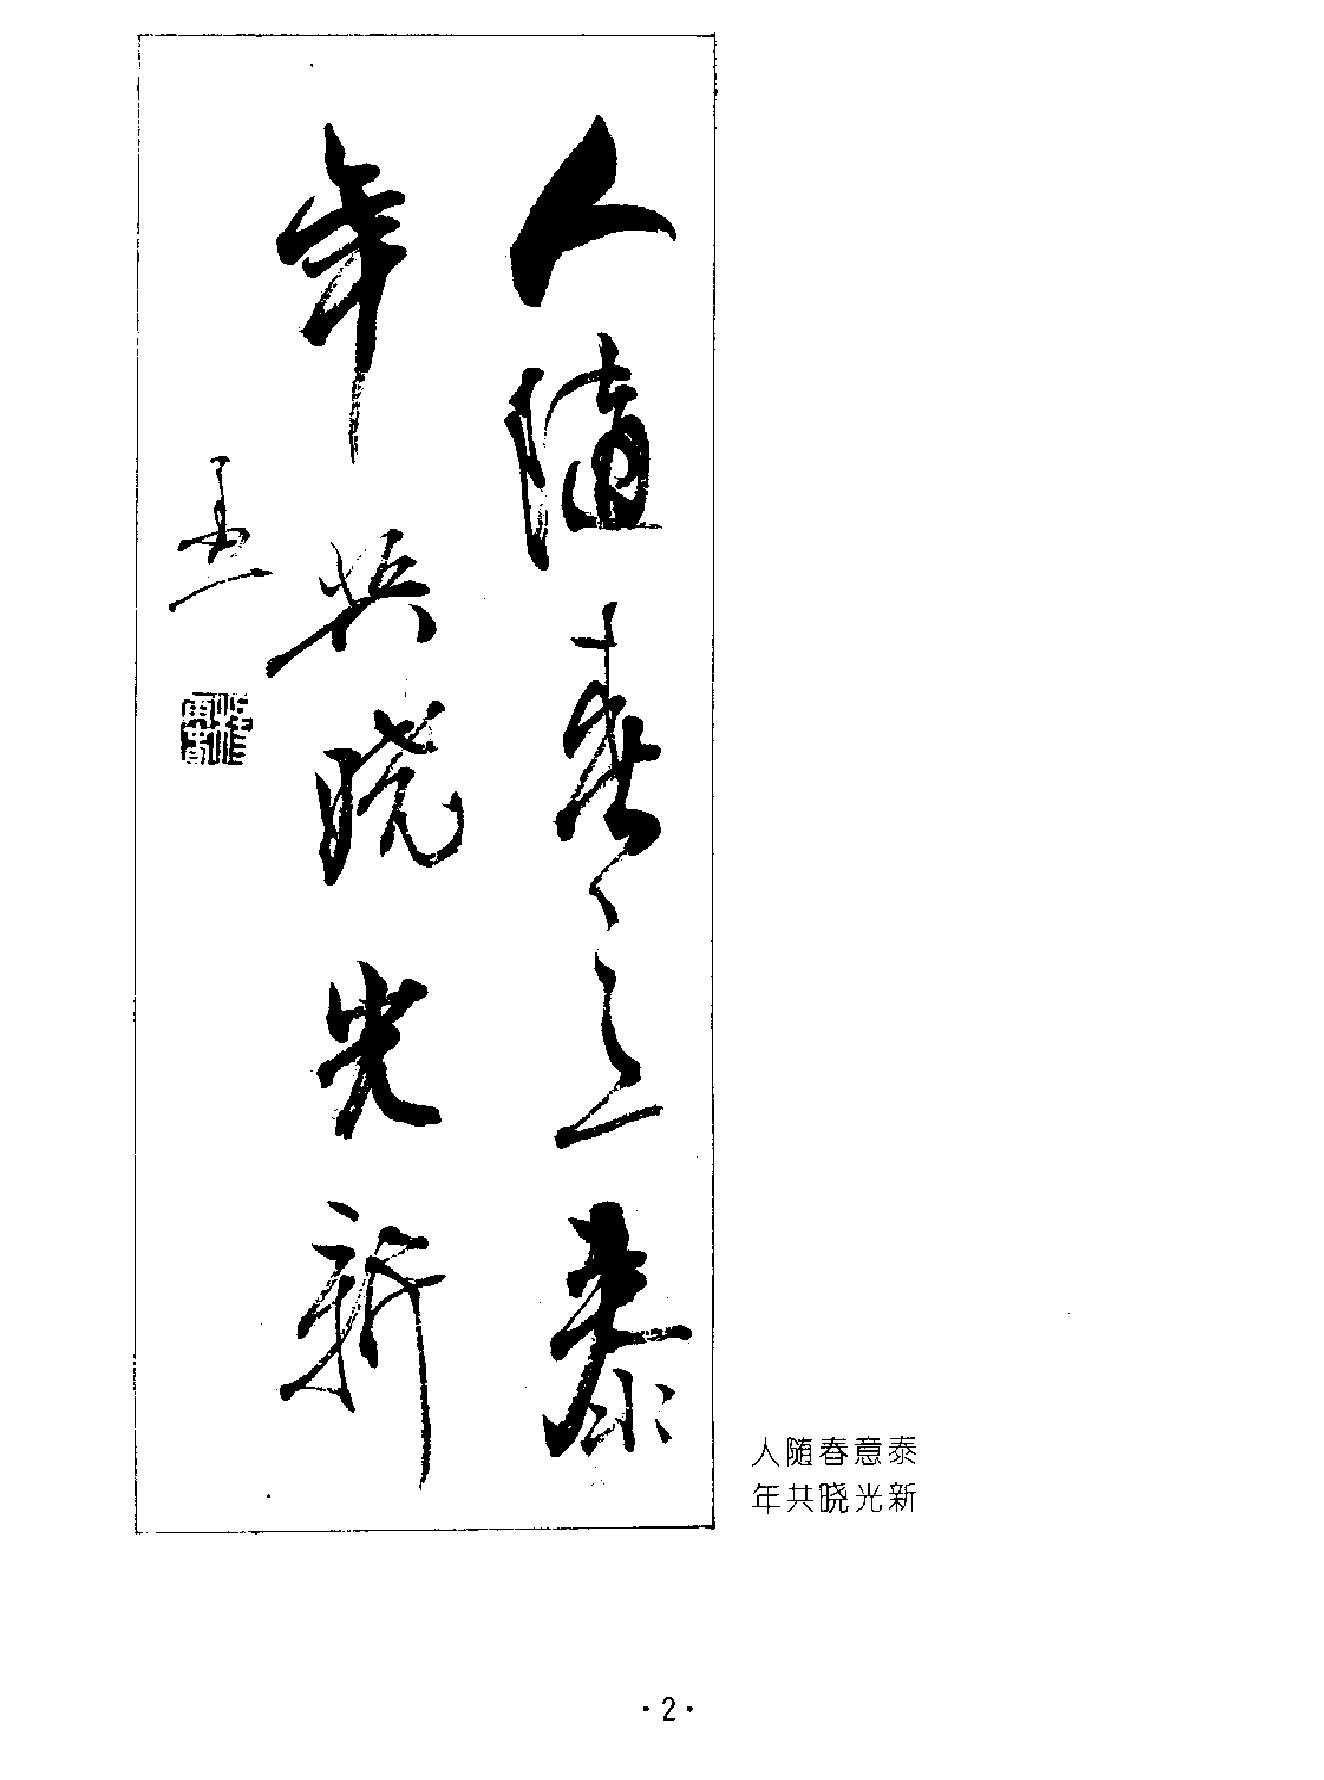 人随春意泰
年共晓光新
人随春意泰
年共晓光新
·2·